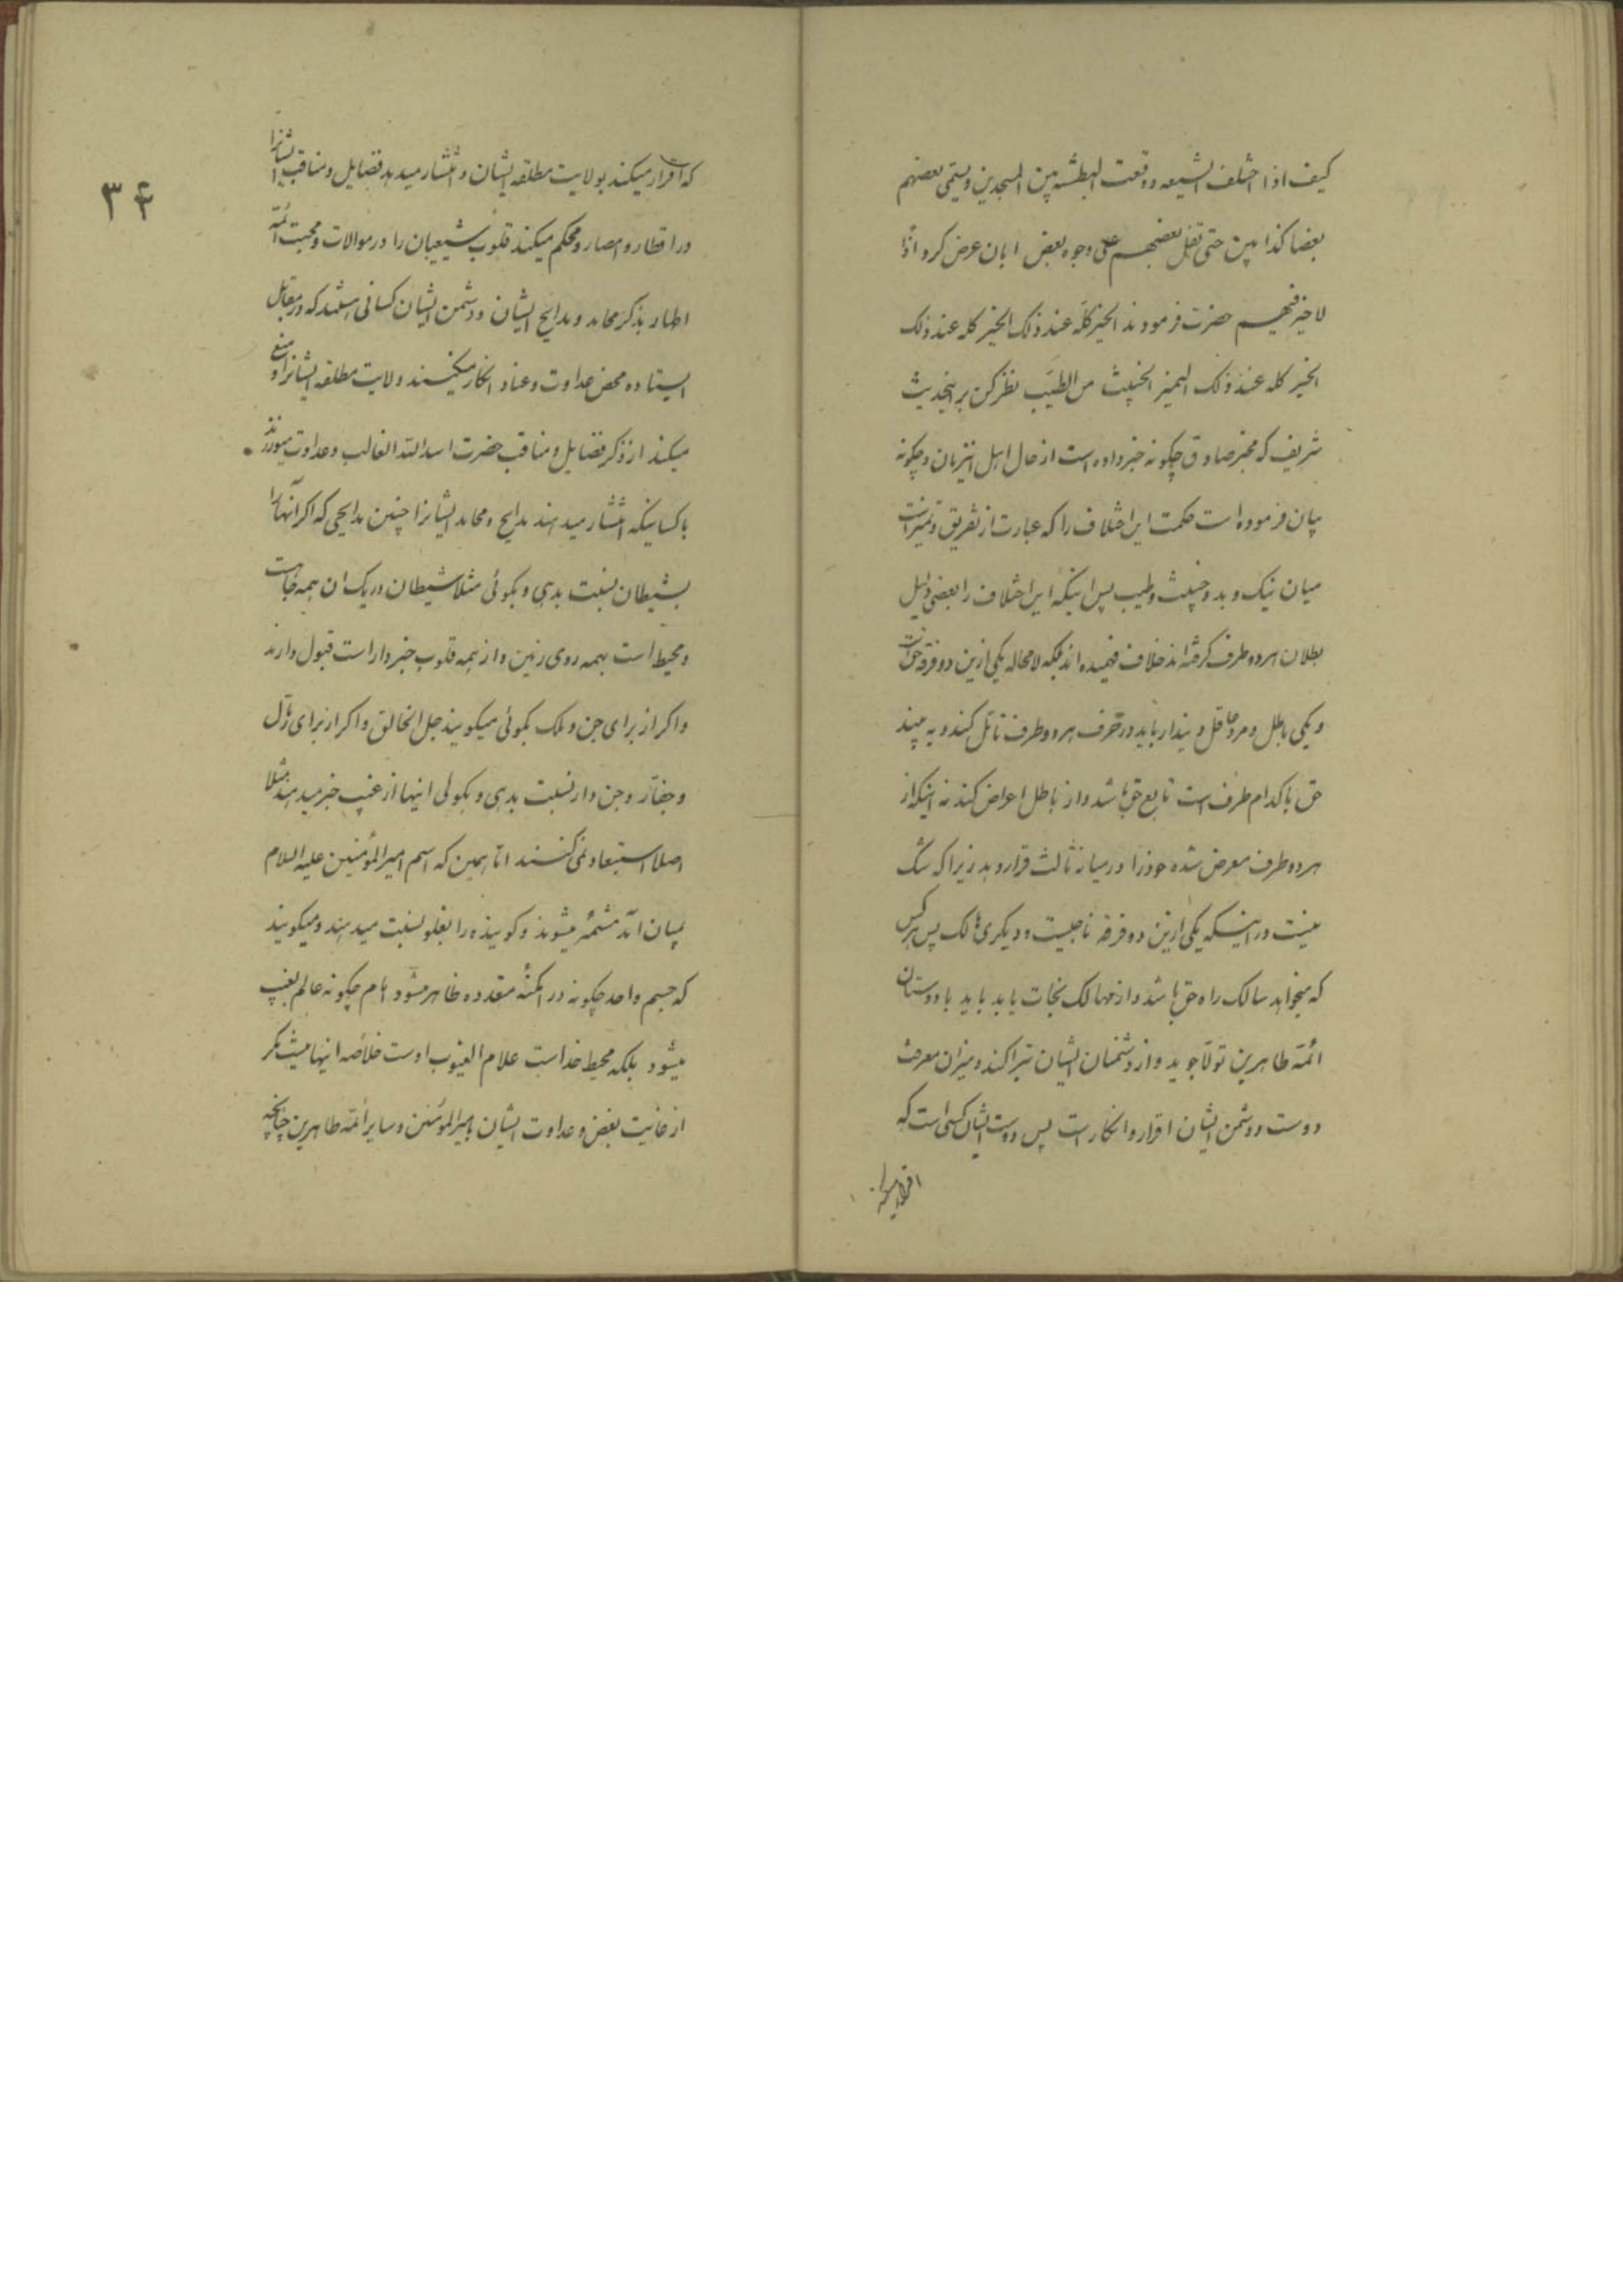 کیف اذا اختلف الشیعه ووقعت البطشه بین المسجدین ویسمی بعضهم
بعضا کذابین حتی تفل بعضهم علی وجوه بعض ابان عرض کرد اذا
لا خیر فیهم حضرت فرمودند الخیر کله عند ذلک الخیر کله عند ذلک
الخیر کله عند ذلک الیمیز الخبیث من الطیب نظر کن بر اینحدیث
شریف که مخبر صادق چکونه خبر داده است از حال اهل اینزمان و چکونه
بیان فرموده است حکمت این اختلاف را که عبارت از تفریق و تمیز است
میان نیک و بد و خبیث و طیب پس اینکه این اختلاف را بعضی دلیل
بطلان هر دو طرف کرفته اند خلاف فهمیده اند بلکه لامحاله یکی ازین دو فرقه حق است
و یکی باطل و مرد عاقل و بیندار باید در حرف هر دو طرف تأمل کند و به بیند
حق با کدام طرف است تابع حق باشد و از باطل اعراض کند نه اینکه از
هر دو طرف معرض شده خود را در میانه ثالث قرار دهد زیرا که شک
نیست در اینکه یکی ازین دو فرقه ناجیست و دیکری هالک پس هر کس
که میخواهد سالک راه حق باشد و از مهالک نجات یابد باید با دوستان
ائمه طاهرین تولا جوید و از دشمنان ایشان تبرا کند و میزان معرفت
دوست و دشمن ایشان اقرار و انکار است پس دوست ایشان کسی است که
اقرار میکند
۳۴
که اقرار میکند بولایت مطلقه ایشان و انتشار میدهد فضایل و مناقب ایشانرا
در اقطار و امصار و محکم میکند قلوب شیعیان را در موالات و محبت ائمه
اطهار بذکر محامد و مدایح ایشان و دشمن ایشان کسانی هستند که در مقابل
ایستاده محض عداوت و عناد انکار میکنند ولایت مطلقه ایشانرا و منع
میکند از ذکر فضایل و مناقب حضرت اسد الله الغالب و عداوت میورزند
با کسانیکه انتشار میدهند مدایح و محامد ایشانرا چنین مدایحی که اکر آنها را
بشیطان نسبت بدهی و بکوئی مثلا شیطان در یک ان همه جا هست
و محیط است بهمه روی زمین و از همه قلوب خبردار است قبول دارند
و اکر از برای جن و ملک بکوئی میکویند جل الخالق و اکر از برای رمال
و جفار و جن دار نسبت بدهی و بکوئی اینها از غیب خبر میدهند مثلا
اصلا استبعاد نمی کنند اما همین که اسم امیر المؤمنین علیه السلام
بمیان آمد مشمئز میشوند و کوینده را بغلو نسبت میدهند و میکویند
که جسم واحد چکونه در امکنهٔ متعدده ظاهر میشود امام چکونه عالم بغیب
میشود بلکه محیط خداست علام الغیوب اوست خلاصه اینها نیست مکر
از غایت بغض و عداوت ایشان بامیر المؤمنین و سایر ائمه طاهرین چنانچه